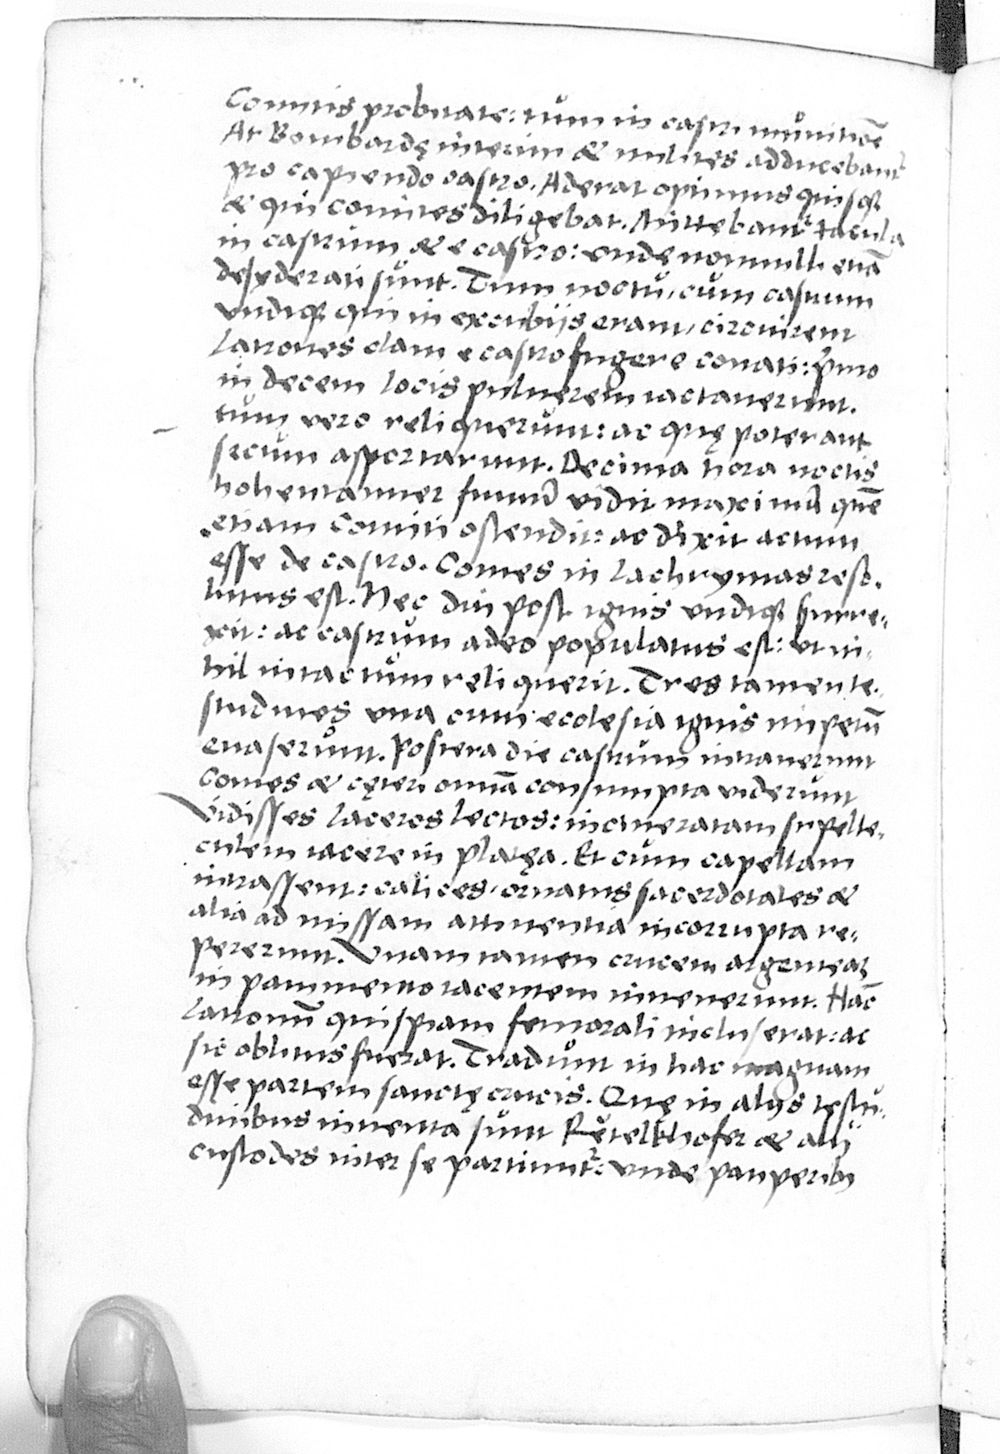 Comitis probitate: tum in castri munitiōe
At Bombardę interim & milites adducebant᷑
pro capiendo castro. Aderat optimus quisq́
& qui comites diligebat. Mittebant᷑ Iacula
in castrum & e castro: undę nonnulli etiā
desyderati sunt. Tum noctu, cum castrum
undiq́ qui in excubijs erant, circuirent
latrones clam e castro fugere conati: p̄mo
in decem locis puluerem iactauerunt.
tum vero reliquerunt: ac quę poterant
secum asportarunt. Decima hora noctis
hohentanner fumū vidit maximū quē
etiam Comiti ostendit: ac dixit actum
esse de castro. Comes in lachrymas reso-
lutus est. Nec diu post ignis undiq́ surre-
xit: ac castrum adeo populatus est: ut ni-
hil intactum reliquerit. Tres tamen te-
studines una cum ecclesia ignis impetū
euaserunt. Postera die castrum intrauerunt
Comes & cęteri omnia consumpta viderunt
Vidisses laceros lectos: incineratam supelle-
ctilem iacere in platęa. Et cum capellam
intrassent: calices, ornatus sacerdotales &
alia ad missam attinentia incorrupta re-
pererunt. Unam tamen crucem argenteā
in pauimento iacentem inuenerunt. Hāc
latronū quispiam femorali incluserat: ac
sic oblitus fuerat. Tradunt in hac magnam
esse partem sanctę crucis. Quę in alijs testu-
dinibus inuenta sunt Retelkhofer & alij
custodes inter se partiunt᷑: unde pauperib;